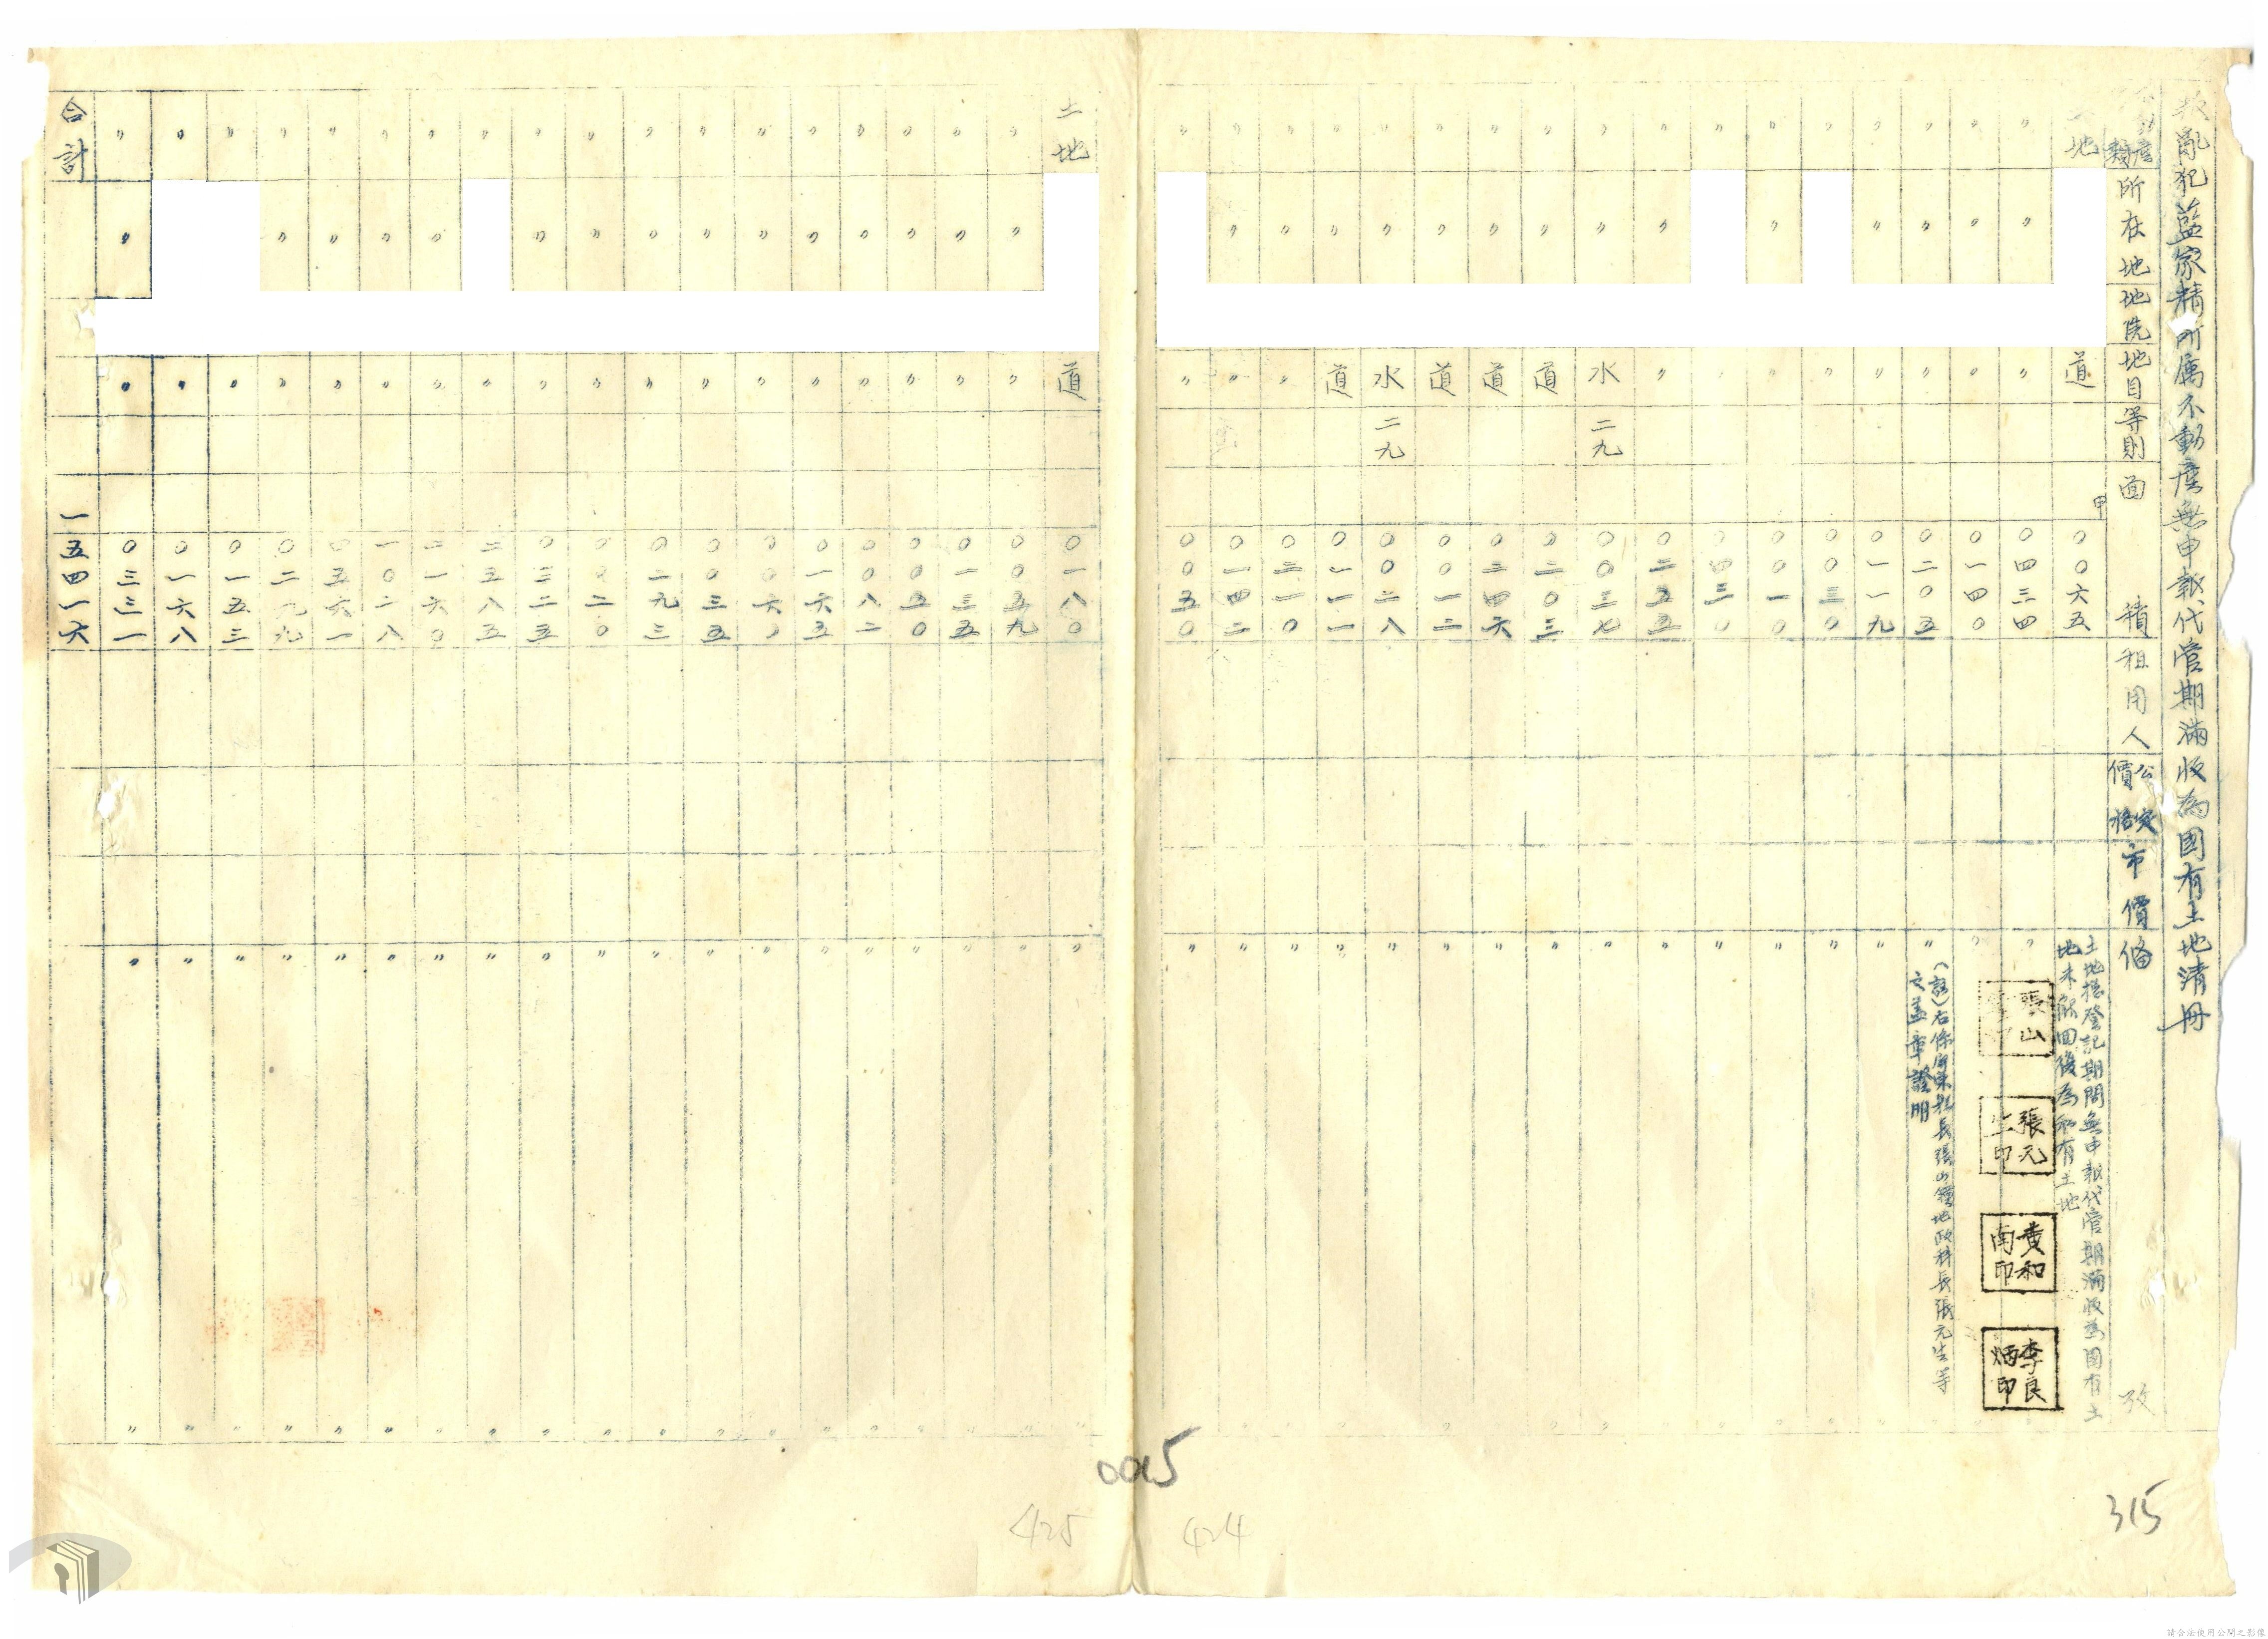 叛亂犯藍家精所属不動產無申報代管期滿收為國有土地清冊
不動產類
所在地
地號
地目
等則
面積
租用人
公定價格
市價
備攷
地 道 甲 〇〇六五 土地總登記期間無申報代管期滿收為國有土地未繳回後為私有土地
〃 〃 〃 〇四三四 〃
〃 〃 〃 〇一四〇 〃
〃 〃 〃 〇二〇五 〃
〃 〃 〃 〇一一九 〃
〃 〃 〇〇三〇 〃
〃 〃 〃 〇〇一〇 〃
〃 〃 〇四三〇 〃
〃 〃 〃 〇二五五 〃
〃 〃 水 二九 〇〇三七 〃
〃 〃 道 〇二〇三 〃
〃 〃 道 〇二四六 〃
〃 〃 道 〇〇一二 〃
〃 〃 水 二九 〇〇二八 〃
〃 〃 道 〇一一一 〃
〃 〃 〃 〇二一〇 〃
〃 〃 〃 〇一四二 〃
〃 〃 〇〇五〇 〃
張山
張元生印
黄和南印
李良炳印
（註）右係屏東縣長張山鐘地政科長張元生等
文蓋章證明
土地 道 〇一八〇 〃
〃 〃 〃 〇〇五九 〃
〃 〃 〃 〇一三五 〃
〃 〃 〃 〇〇五〇 〃
〃 〃 〃 〇〇八二 〃
〃 〃 〃 〇一六五 〃
〃 〃 〃 〇〇六〇 〃
〃 〃 〃 〇〇三五 〃
〃 〃 〃 〇二九三 〃
〃 〃 〃 〇〇二〇 〃
〃 〃 〃 〇三二五 〃
〃 〃 二五八五 〃
〃 〃 〃 二一六〇 〃
〃 〃 〃 一〇二八 〃
〃 〃 〃 〇五六一 〃
〃 〃 〃 〇二九九 〃
〃 〃 〇一五三 〃
〃 〃 〇一六八 〃
〃 〃 〃 〇三三一 〃
合計 一五四一六
0015
425
424
315
請合法使用公開之影像